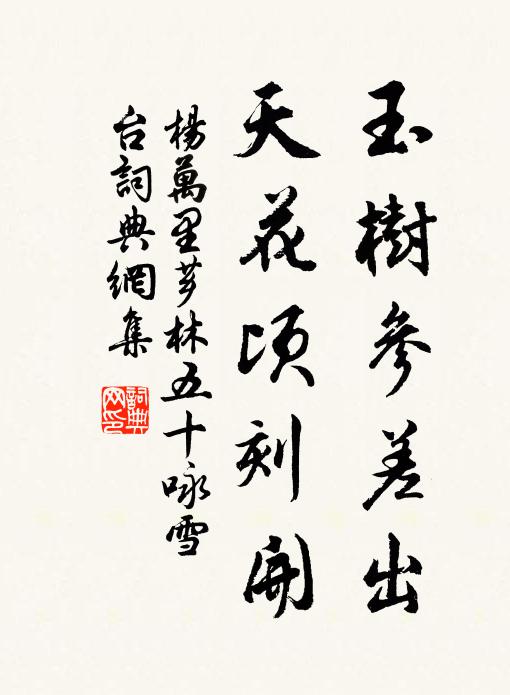 玉樹參差出
天花頃刻開
楊萬里芗林五十咏雪
台詞典網集
詞典网印